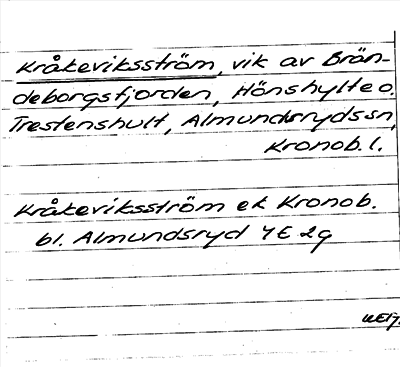 Kråkeviksström, vik av Brän-
deborgsfjorden, Hönshylte o.
Trestenshult, Almundsryds sn,
Kronob. l.
Kråkeviksström ek Kronob.
bl. Almundsryd 4E 2g